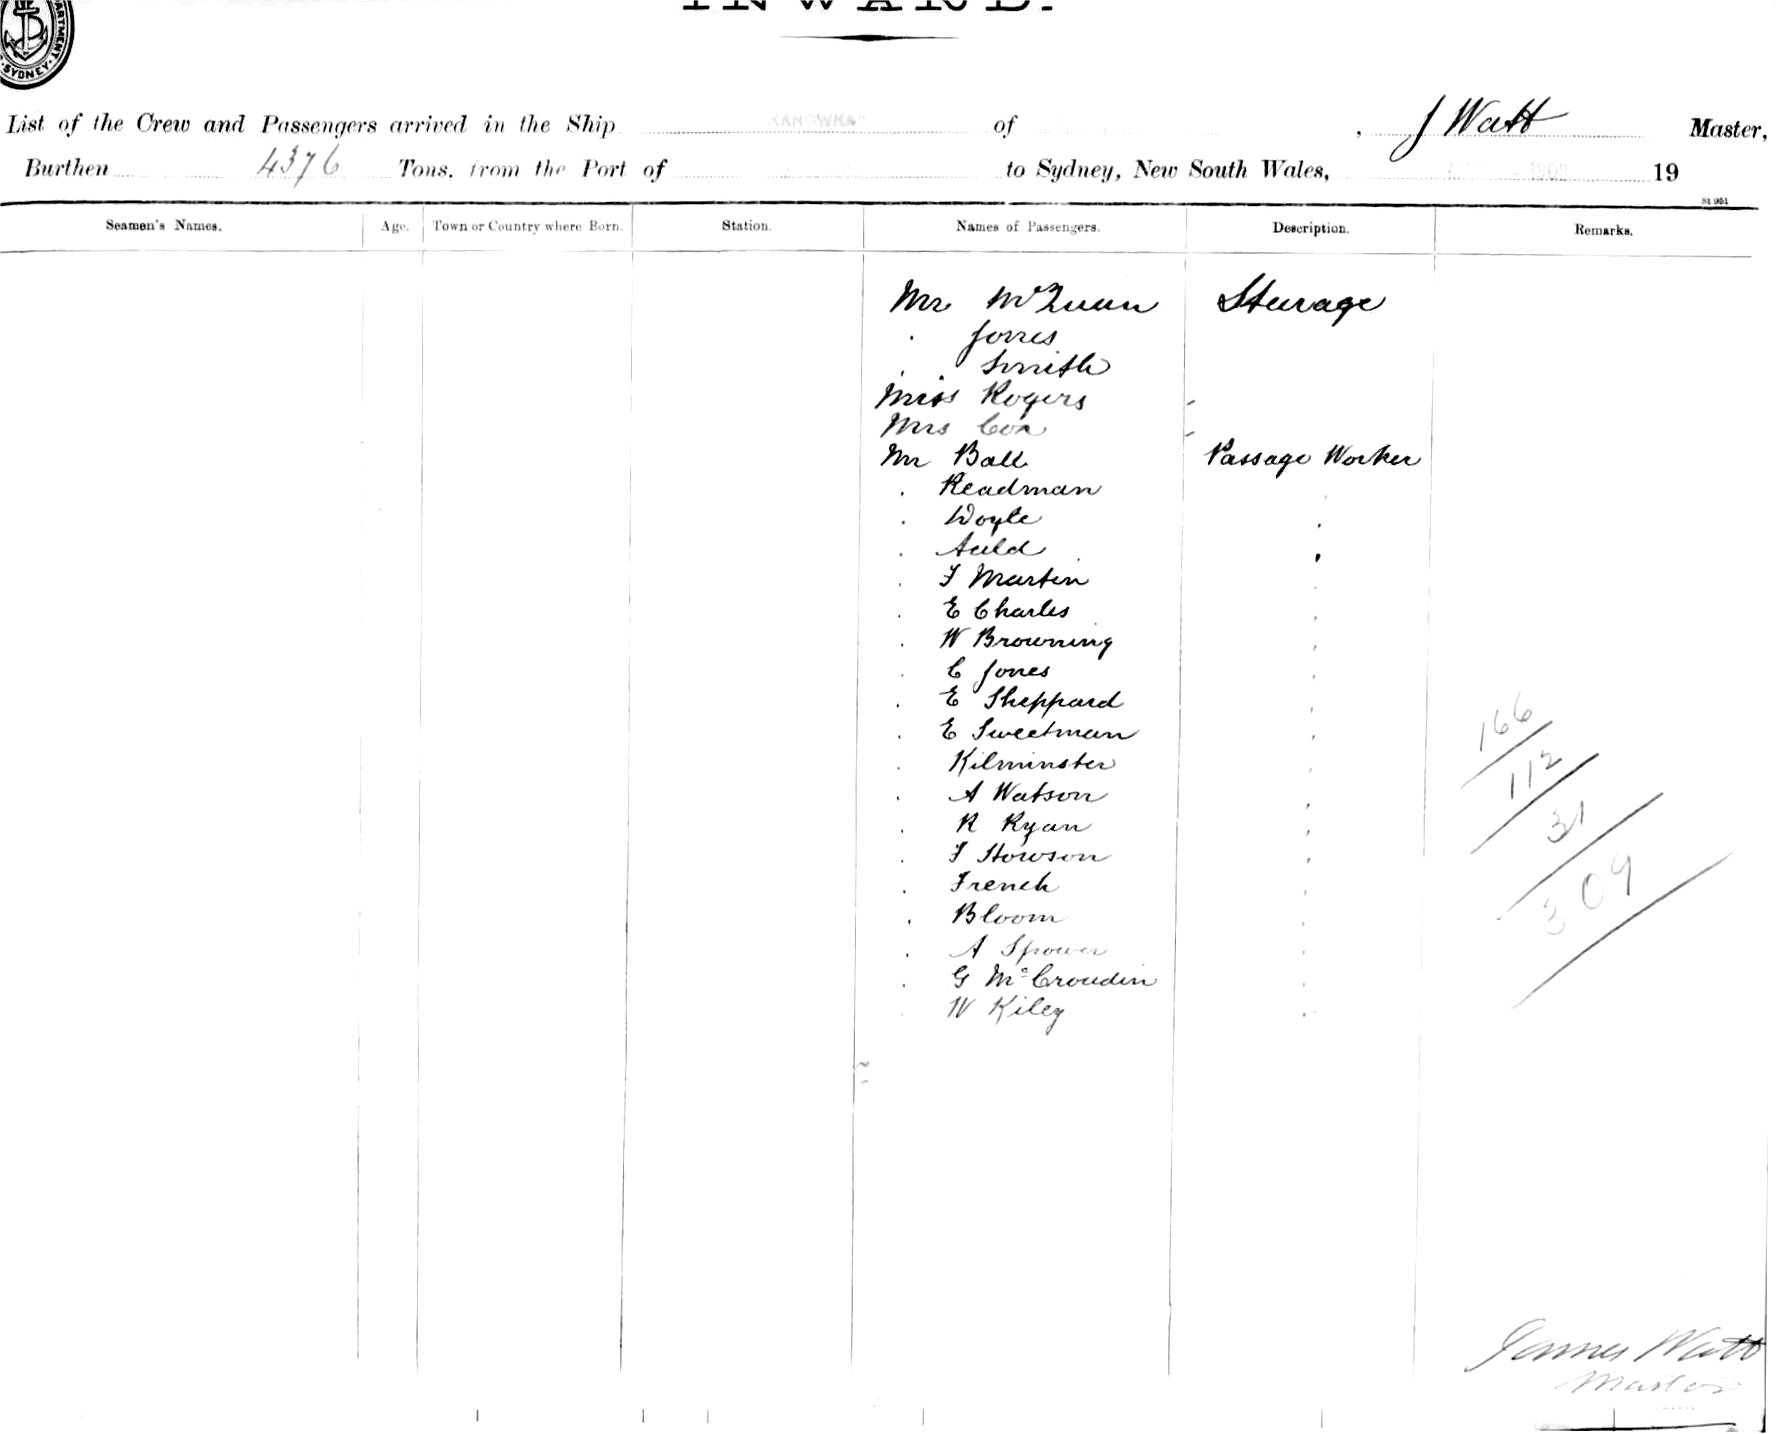 INWARD.
SYDNEY
List of the Crew and Passengers arrived in the Ship KANOWNA of , J Watt Master,
Burthen 4376 Tons, from the Port of to Sydney, New South Wales, 1902 19
Seamen's Names. Age. Town or Country where Born. Station. Names of Passengers. Description. Remarks.
Mr Steerage
. Jones
. Smith
Miss Rogers
Mrs Cox
Mr Ball Passage Worker
. Readman
. Doyle
. Auld
. F Martin
. E Charles
. W Browning
. C Jones
. E Sheppard
. E Sweetman
. Kilminster
. A Watson
. R Ryan
. F Howson
. French
. Bloom
. A Spower
. G McCroudin
. W Kiley
166
112
31
309
James Watt
Master